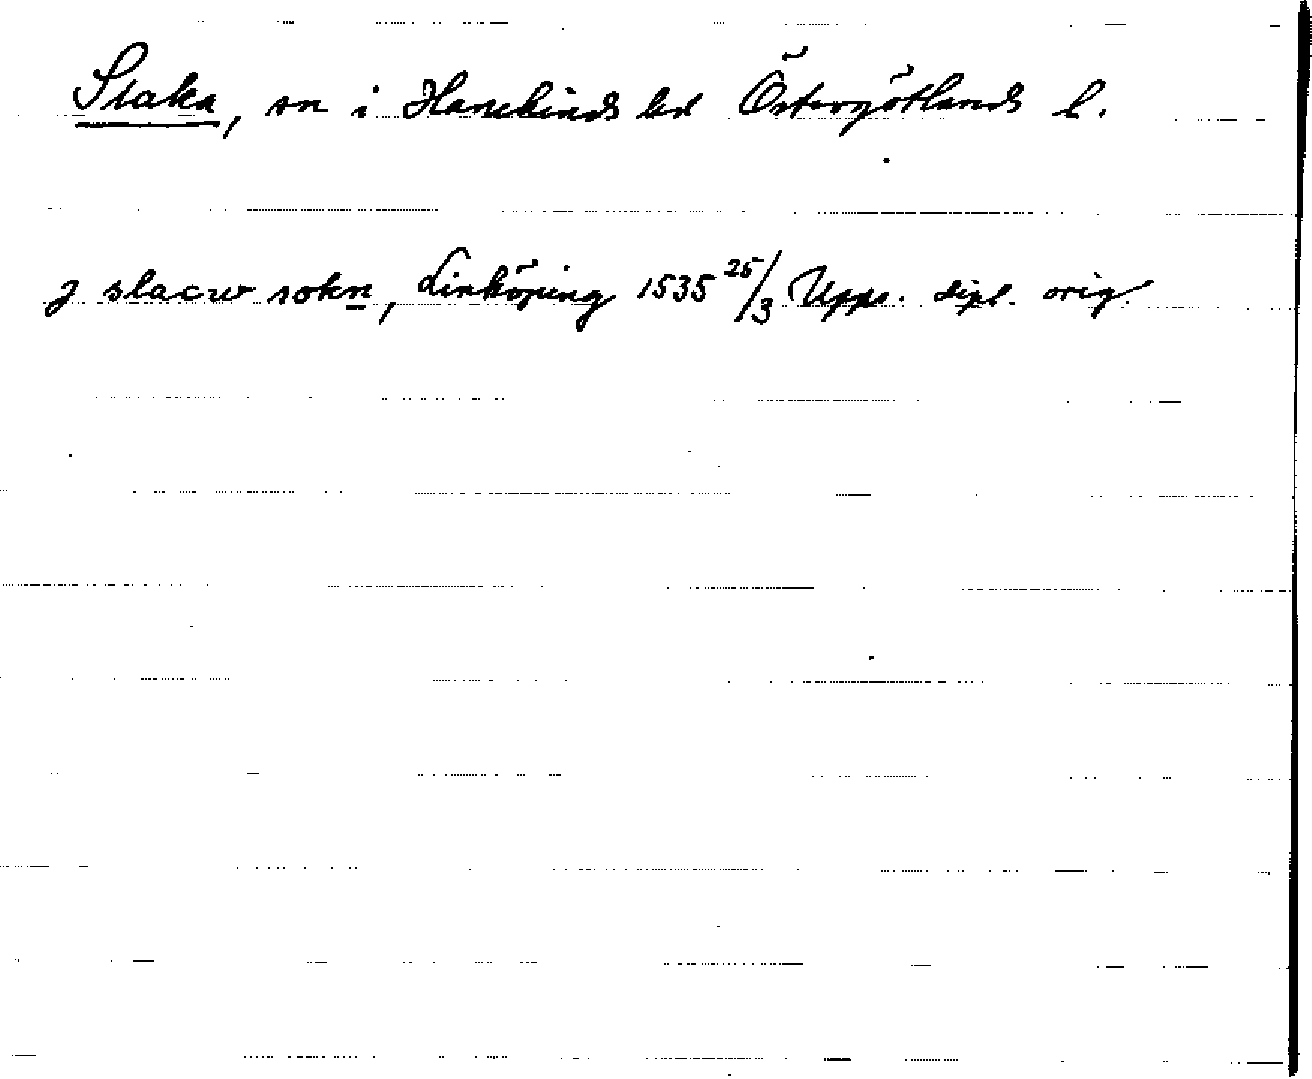 Slaka, sn i Hanekinds hd Östergötlands l.
J slacw sokn, Linköping 1535 25/3 Upps. dipl. orig.